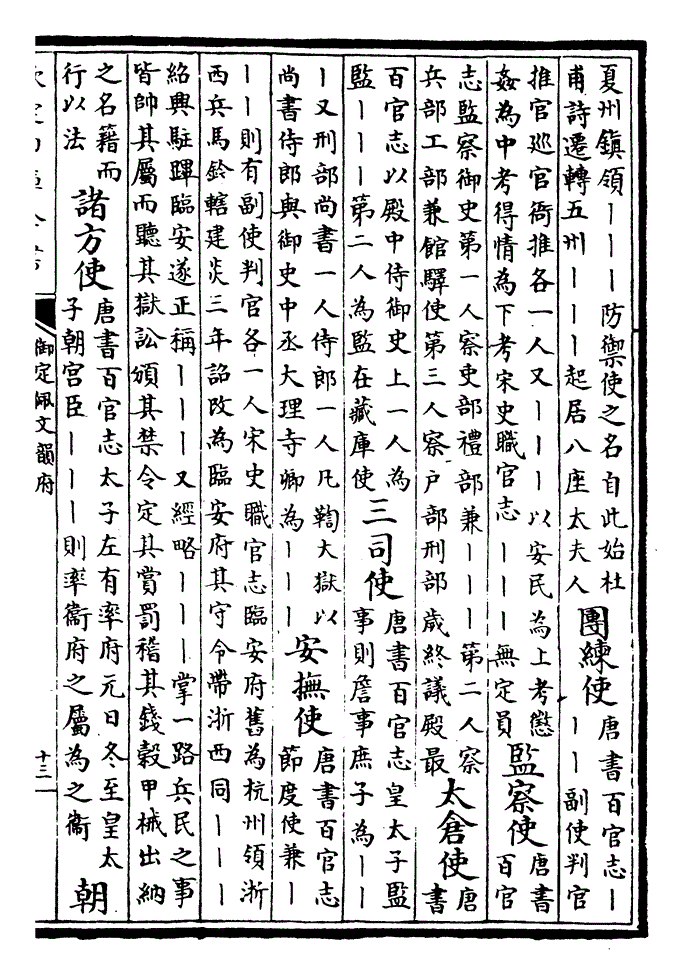 夏州鎮領｜｜｜防禦使之名自此始杜
甫詩遷轉五州｜｜｜起居八座太夫人
團練使
唐書百官志｜
｜｜副使判官
推官巡官衙推各一人又｜｜｜以安民為上考懲
姦為中考得情為下考宋史職官志｜｜｜無定員
監察使
唐書
百官
志監察御史第一人察吏部禮部兼｜｜｜第二人察
兵部工部兼館驛使第三人察戶部刑部歲終議殿最
太倉使
唐
書
百官志以殿中侍御史上一人為
監｜｜｜第二人為監在藏庫使
三司使
唐書百官志皇太子監
事則詹事庶子為｜｜
｜又刑部尚書一人侍郎一人凡鞫大獄以
尚書侍郎與御史中丞大理寺卿為｜｜｜
安撫使
唐書百官志
節度使兼｜
｜｜則有副使判官各一人宋史職官志臨安府舊為杭州領浙
西兵馬鈐轄建炎三年詔改為臨安府其守令帶浙西同｜｜｜
紹興駐蹕臨安遂正稱｜｜｜又經略｜｜｜掌一路兵民之事
皆帥其屬而聽其獄訟頒其禁令定其賞罰稽其錢穀甲械出納
之名籍而
行以法
諸方使
唐書百官志太子左有率府元日冬至皇太
子朝宮臣｜｜｜則率衞府之屬為之衞
朝
御定佩文韻府
十三